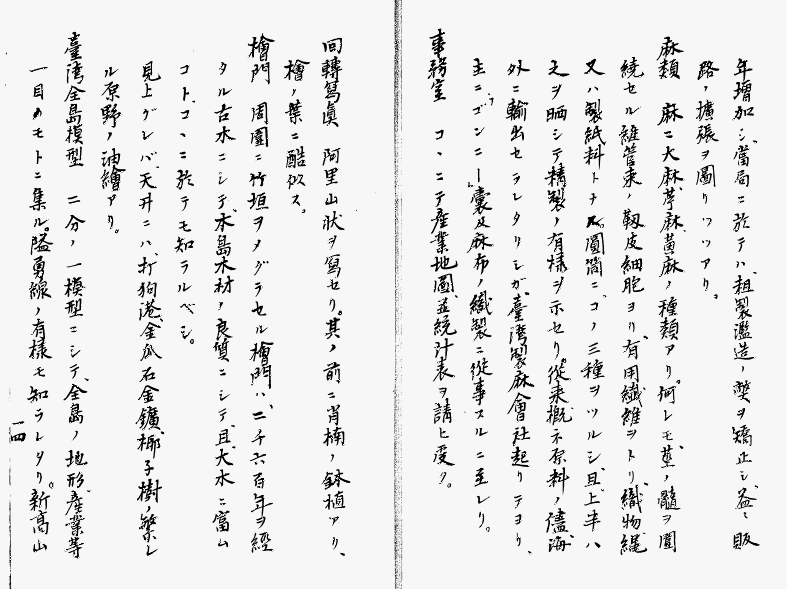 年增加シ、當局ニ於テハ粗製濫造ノ獘ヲ矯正シ、益〻販
路ノ擴張ヲ圖リツツアリ。
麻類 麻ニ大麻、苧麻、黃麻ノ種類アリ。何レモ莖ノ髓ヲ圍
繞セル維管束ノ靱皮細胞ヨリ、有用纖維ヲトリ、織物、繩
又ハ製紙料トナス。圓筒ニコノ三種ヲツルシ、且上半ハ
之ヲ晒シテ精製ノ有樣ヲ示セリ。從來概ネ原料ノ儘海
外ニ輸出セラレタリシガ、臺灣製麻會社起リテヨリ、
主ニゴンニー囊及麻布ノ纖製ニ從事スルニ至レリ。
事務室 ココニテ產業地圖、並統計表ヲ請ヒ受ク。
回轉寫眞 阿里山狀ヲ寫セリ。其ノ前ニ肖楠ノ鉢植アリ、
檜ノ葉ニ酷似ス。
檜門 周圍ニ竹垣ヲメグラセル檜門ハ、二千六百年ヲ經
タル古木ニシテ、本島木材ノ良質ニシテ、且、大木ニ富ム
コト、ココニ於テモ知ラルベシ。
見上グレバ、天井ニハ、打狗港、金瓜石金鑛、椰子樹ノ繁レ
ル原野ノ油繪アリ。
臺灣全島模型 二分ノ一模型ニシテ、全島ノ地形、產業等
一目ノモトニ集ル。隘勇線ノ有樣モ知ラレタリ。新高山
一四